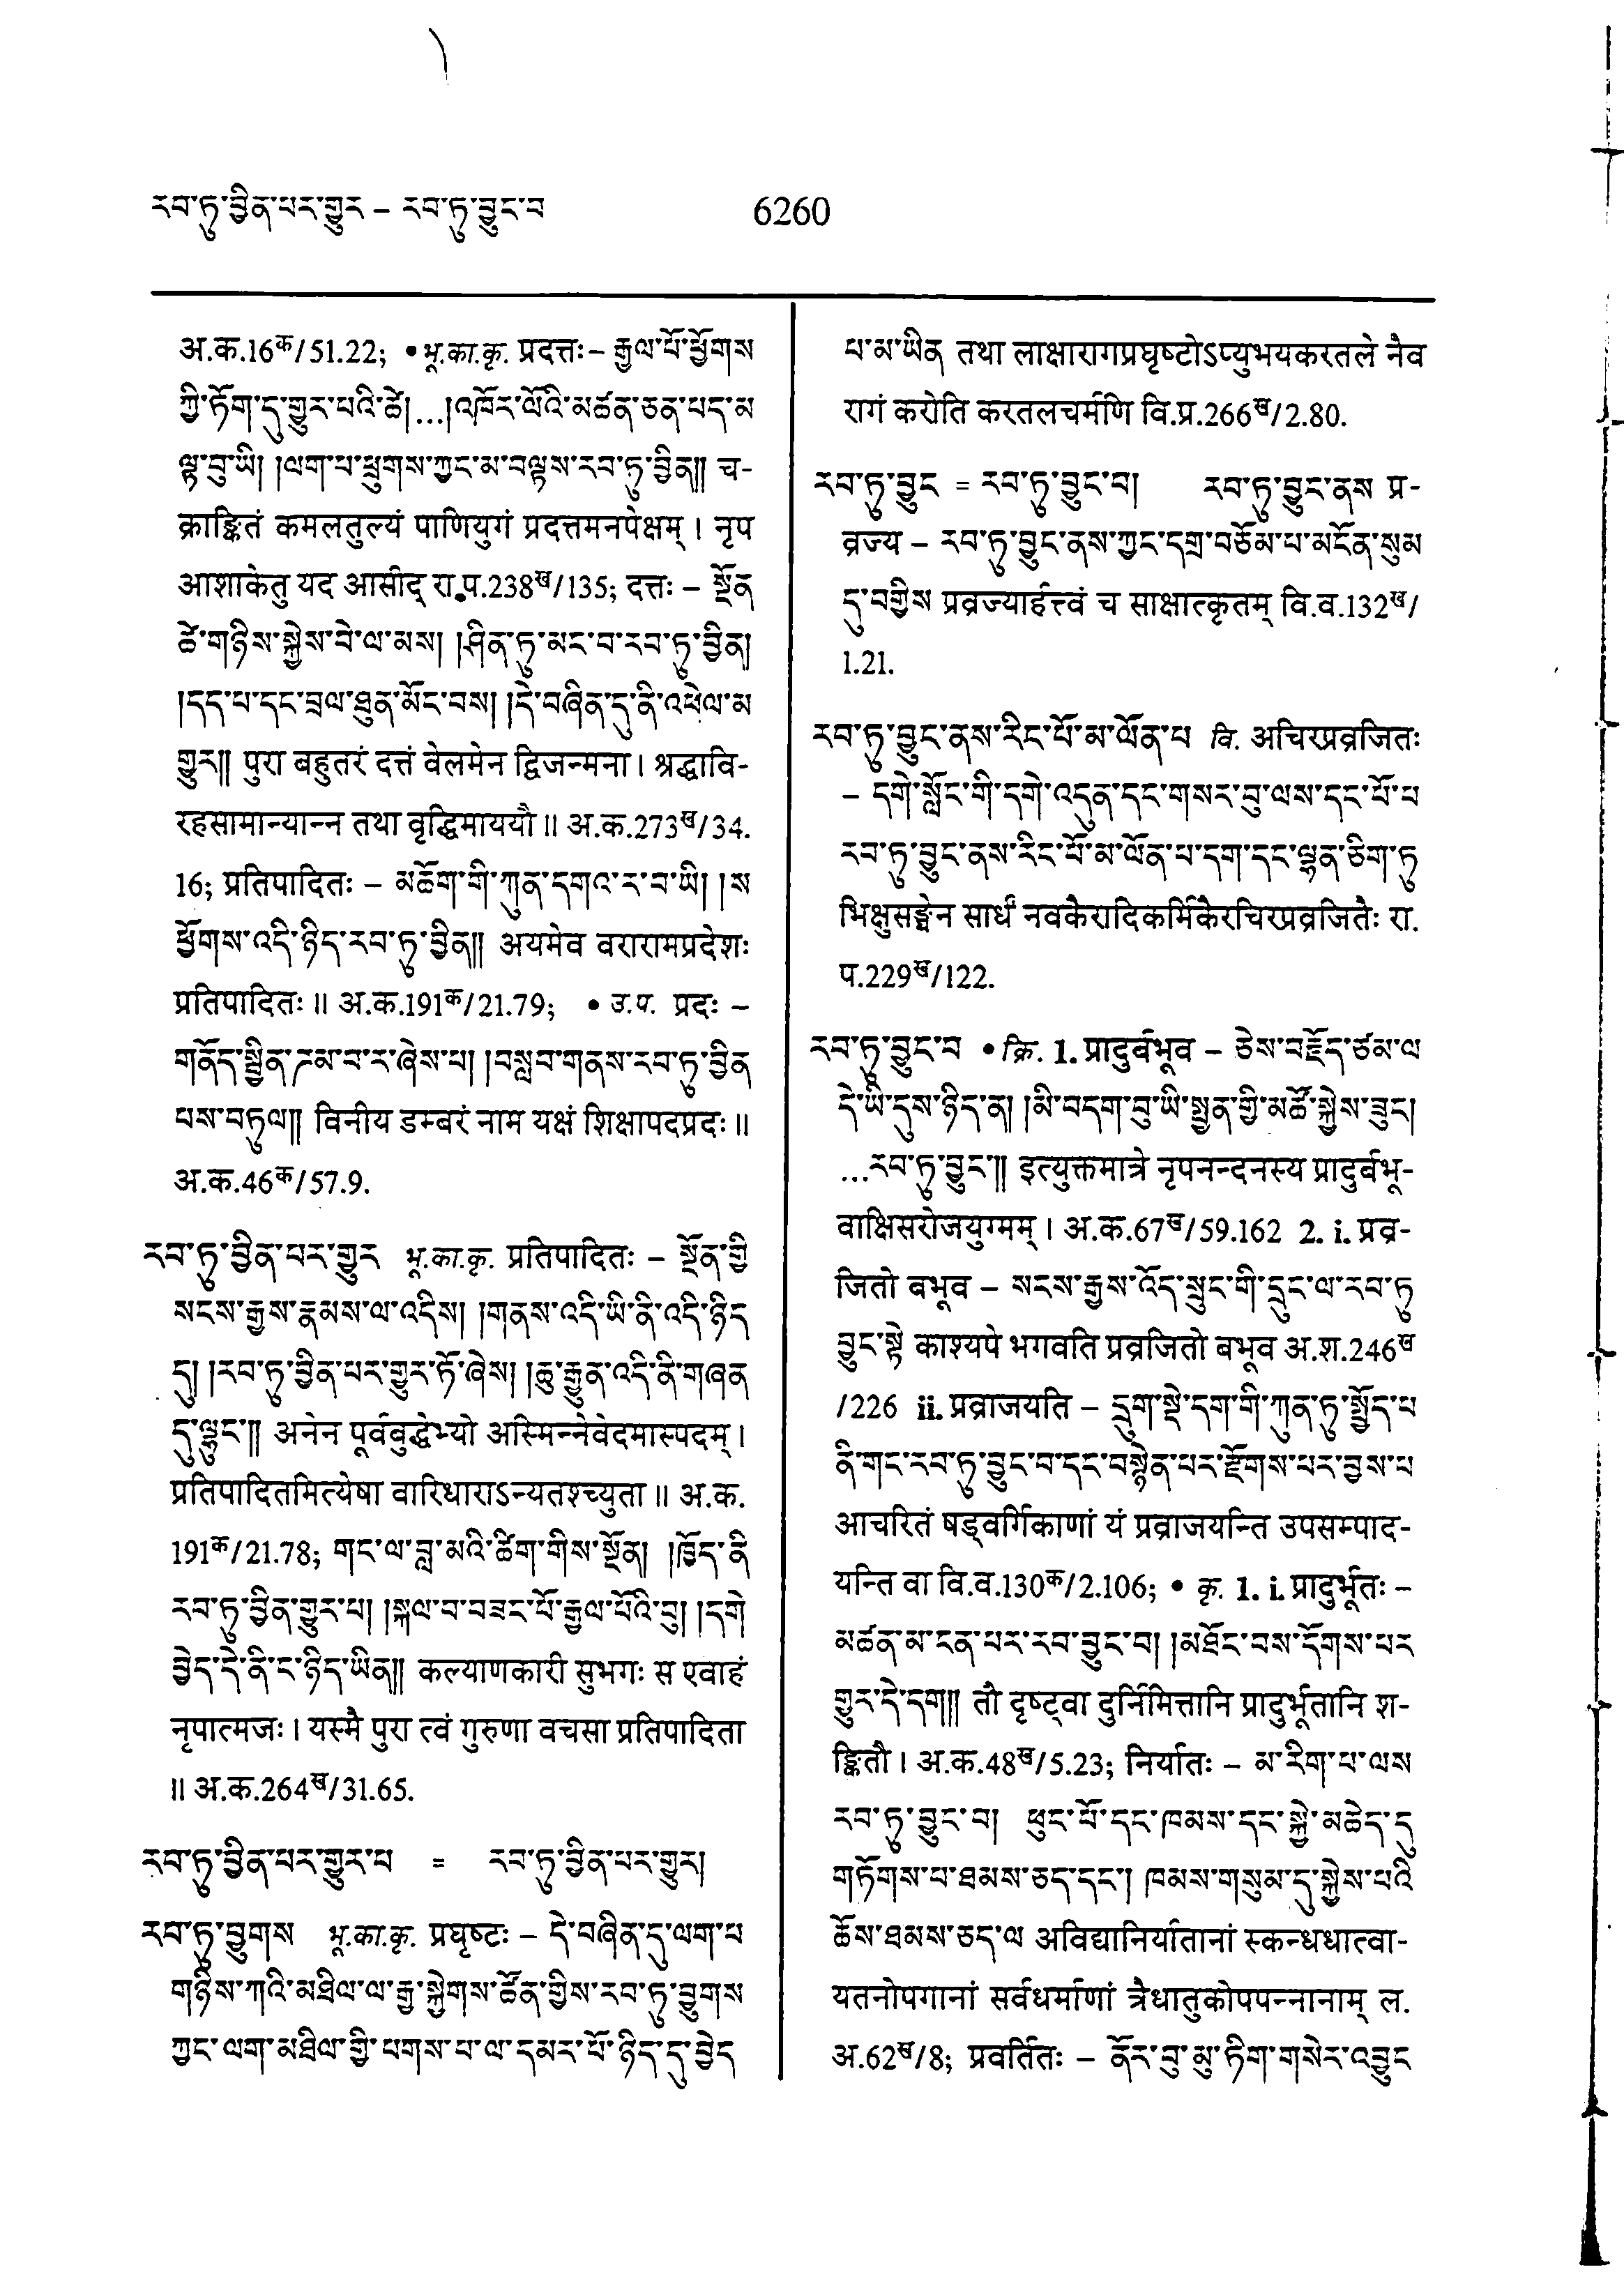 རབ་ཏུ་བྱིན་པར་གྱུར – རབ་ཏུ་བྱུང་བ
6260
अ.क.16क/51.22; • भू.का.कृ. प्रदत्तः– རྒྱལ་པོ་ཕྱོགས
ཀྱི་ཏོག་དུ་གྱུར་པའི་ཚེ།...།འཁོར་ལོའི་མཚན་ཅན་པད་མ
ལྟ་བུ་ཡི། །ལག་པ་ཕྲུགས་ཀྱང་མ་བལྟས་རབ་ཏུ་བྱིན།། च-
क्राङ्कितं कमलतुल्यं पाणियुगं प्रदत्तमनपेक्षम् । नृप
आशाकेतु यद आसीद् रा.प.238ख/135; दत्तः – སྔོན
ཚེ་གཉིས་སྐྱེས་བེ་ལ་མས། །ཤིན་ཏུ་མང་བ་རབ་ཏུ་བྱིན།
།དད་པ་དང་བྲལ་ཐུན་མོང་བས། །དེ་བཞིན་དུ་ནི་འཕེལ་མ
གྱུར།། पुरा बहुतरं दत्तं वेलमेन द्विजन्मना । श्रद्धावि-
रहसामान्यान्न तथा वृद्धिमाययौ ॥ अ.क.273ख/34.
16; प्रतिपादितः – མཆོག་གི་ཀུན་དགའ་ར་བ་ཡི། །ས
ཕྱོགས་འདི་ཉིད་རབ་ཏུ་བྱིན།། अयमेव वरारामप्रदेशः
प्रतिपादितः ॥ अ.क.191क/21.79; • उ.प. प्रदः –
གནོད་སྦྱིན་ཌམ་བ་ར་ཞེས་པ། །བསླབ་གནས་རབ་ཏུ་བྱིན
པས་བཏུལ།། विनीय डम्बरं नाम यक्षं शिक्षापदप्रदः ॥
अ.क.46क/57.9.
རབ་ཏུ་བྱིན་པར་གྱུར भू.का.कृ. प्रतिपादितः – སྔོན་གྱི
སངས་རྒྱས་རྣམས་ལ་འདིས། །གནས་འདི་ཡི་ནི་འདི་ཉིད
དུ། །རབ་ཏུ་བྱིན་པར་གྱུར་ཏོ་ཞེས། །ཆུ་རྒྱུན་འདི་ནི་གཞན
དུ་ལྷུང་།། अनेन पूर्वबुद्धेभ्यो अस्मिन्नेवेदमास्पदम् ।
प्रतिपादितमित्येषा वारिधाराऽन्यतश्च्युता ॥ अ.क.
191क/21.78; གང་ལ་བླ་མའི་ཚིག་གིས་སྔོན། །ཁྱོད་ནི
རབ་ཏུ་བྱིན་གྱུར་པ། །སྐལ་བ་བཟང་པོ་རྒྱལ་པོའི་བུ། །དགེ
བྱེད་དེ་ནི་ང་ཉིད་ཡིན།། कल्याणकारी सुभगः स एवाहं
नृपात्मजः । यस्मै पुरा त्वं गुरुणा वचसा प्रतिपादिता
॥ अ.क.264ख/31.65.
རབ་ཏུ་བྱིན་པར་གྱུར་པ = རབ་ཏུ་བྱིན་པར་གྱུར།
རབ་ཏུ་བྱུགས भू.का.कृ. प्रघृष्टः – དེ་བཞིན་དུ་ལག་པ
གཉིས་ཀའི་མཐིལ་ལ་རྒྱ་སྐྱེགས་ཚོན་གྱིས་རབ་ཏུ་བྱུགས
ཀྱང་ལག་མཐིལ་གྱི་པགས་པ་ལ་དམར་པོ་ཉིད་དུ་བྱེད
པ་མ་ཡིན तथा लाक्षारागप्रघृष्टोऽप्युभयकरतले नैव
रागं करोति करतलचर्मणि वि.प्र.266ख/2.80.
རབ་ཏུ་བྱུང = རབ་ཏུ་བྱུང་བ། རབ་ཏུ་བྱུང་ནས प्र-
व्रज्य – རབ་ཏུ་བྱུང་ནས་ཀྱང་དགྲ་བཅོམ་པ་མངོན་སུམ
དུ་བགྱིས प्रव्रज्यार्हत्त्वं च साक्षात्कृतम् वि.व.132ख/
1.21.
རབ་ཏུ་བྱུང་ནས་རིང་པོ་མ་ལོན་པ वि. अचिरप्रव्रजितः
– དགེ་སློང་གི་དགེ་འདུན་དང་གསར་བུ་ལས་དང་པོ་པ
རབ་ཏུ་བྱུང་ནས་རིང་པོ་མ་ལོན་པ་དག་དང་ལྷན་ཅིག་ཏུ
भिक्षुसङ्घेन सार्धं नवकैरादिकर्मिकैरचिरप्रव्रजितैः रा.
प.229ख/122.
རབ་ཏུ་བྱུང་བ • क्रि. 1. प्रादुर्बभूव – ཅེས་བརྗོད་ཙམ་ལ
དེ་ཡི་དུས་ཉིད་ན། །མི་བདག་བུ་ཡི་སྤྱན་གྱི་མཚོ་སྐྱེས་ཟུང།
...རབ་ཏུ་བྱུང་།། इत्युक्तमात्रे नृपनन्दनस्य प्रादुर्बभू-
वाक्षिसरोजयुग्मम् । अ.क.67ख/59.162 2. i. प्रव्र-
जितो बभूव – སངས་རྒྱས་འོད་སྲུང་གི་དྲུང་ལ་རབ་ཏུ
བྱུང་སྟེ काश्यपे भगवति प्रव्रजितो बभूव अ.श.246ख
/226 ii. प्रव्राजयति – དྲུག་སྡེ་དག་གི་ཀུན་ཏུ་སྤྱོད་པ
ནི་གང་རབ་ཏུ་བྱུང་བ་དང་བསྙེན་པར་རྫོགས་པར་བྱས་པ
आचरितं षड्वर्गिकाणां यं प्रव्राजयन्ति उपसम्पाद-
यन्ति वा वि.व.130क/2.106; • कृ. 1. i. प्रादुर्भूतः –
མཚན་མ་ངན་པར་རབ་བྱུང་བ། །མཐོང་བས་དོགས་པར
གྱུར་དེ་དག།། तौ दृष्ट्वा दुर्निमित्तानि प्रादुर्भूतानि श-
ङ्कितौ । अ.क.48ख/5.23; निर्यातः – མ་རིག་པ་ལས
རབ་ཏུ་བྱུང་བ། ཕུང་པོ་དང་ཁམས་དང་སྐྱེ་མཆེད་དུ
གཏོགས་པ་ཐམས་ཅད་དང་། ཁམས་གསུམ་དུ་སྐྱེས་པའི
ཆོས་ཐམས་ཅད་ལ अविद्यानिर्यातानां स्कन्धधात्वा-
यतनोपगानां सर्वधर्माणां त्रैधातुकोपपन्नानाम् ल.
अ.62ख/8; प्रवर्तितः – ནོར་བུ་མུ་ཏིག་གསེར་འབྱུང